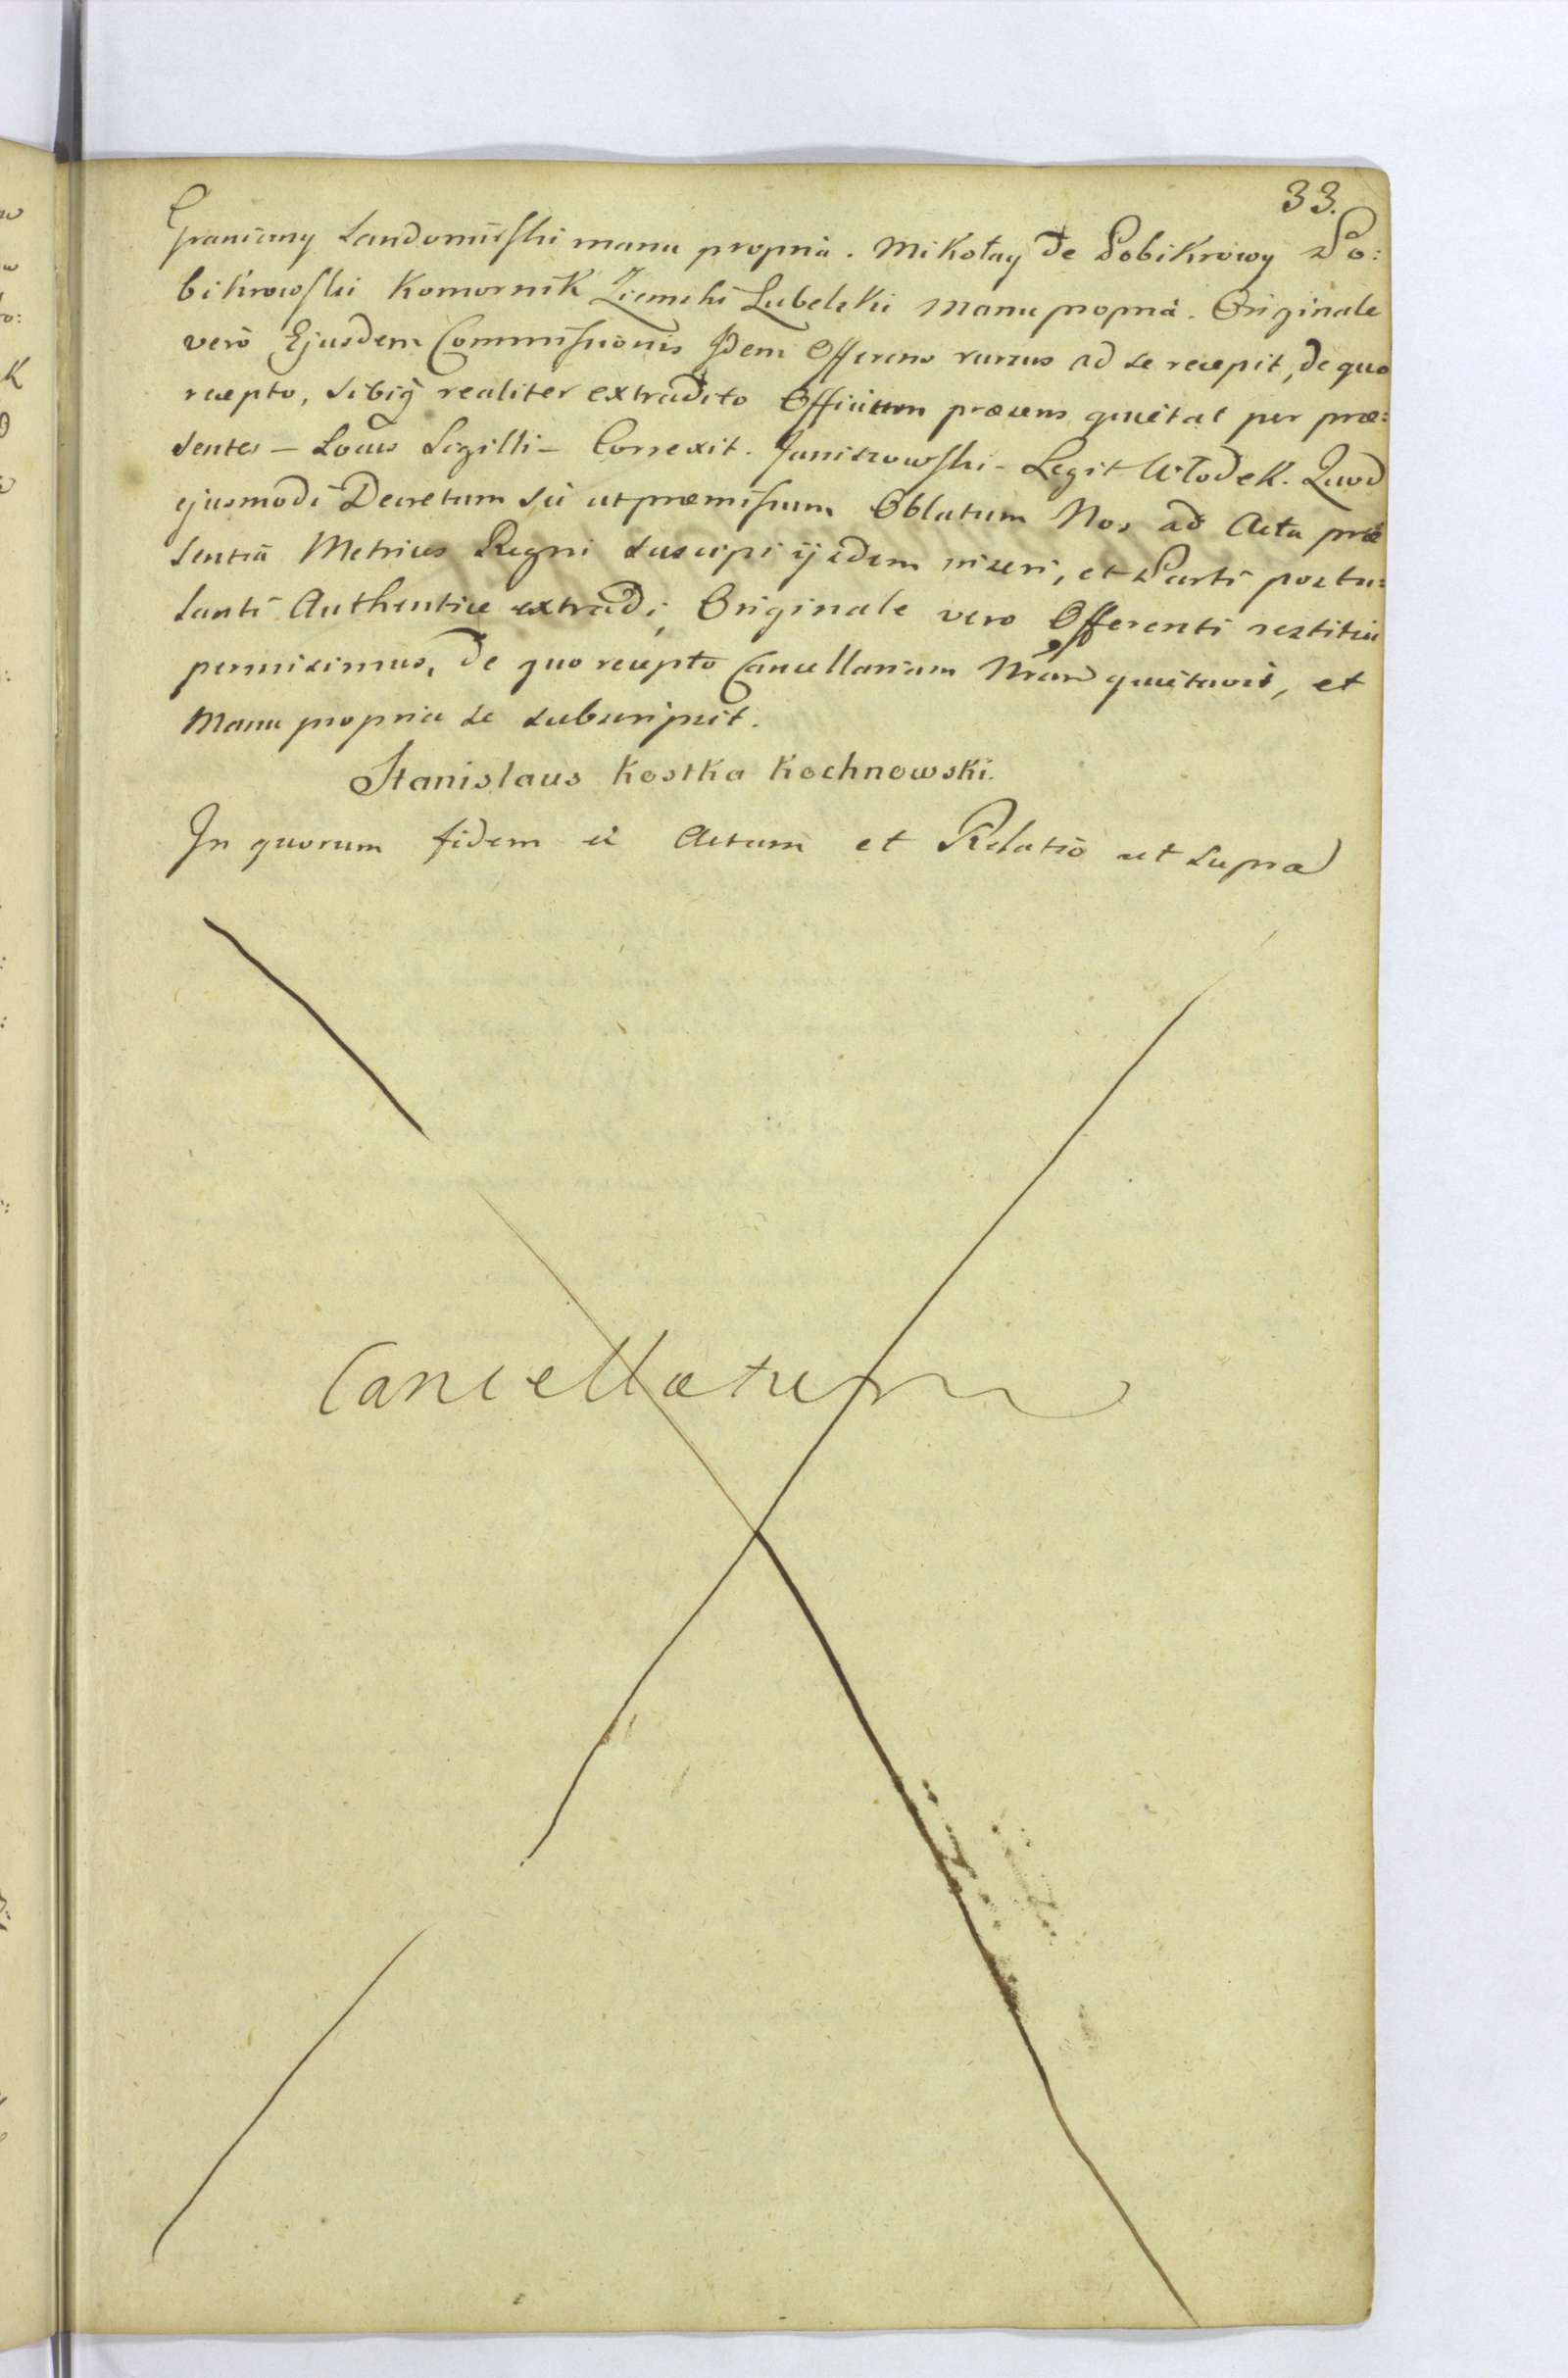 33.
Graniczny Sandomirski manu propriâ. Mikołay de Pobikrowy Po:
bikrowski Komornik Ziemski Lubelski manu propriâ. Originale
verò Ejusdem Commissionis Idem Offerens rursus ad se recepit, de quo
recepto, sibiq̃ realiter extradito Officium præsens quietat per præ:
sentes – Locus Sigilli – Correxit. Janiszowski – Legit Włodek. Quod
ejusmodi Decretum sic ut præmissum Oblatum Nos ad Acta præ
sentia Metrices Regni suscipi ijsdem inseri, et Parti postu:
lanti Authentice extradi, Originale vero Offerenti restitui
permisimus, de quo recepto Cancellariam Nram quietavit, et
Manu propria se subscripsit.
Stanislaus Kostka Kochnowski.
In quorum fidem et Actum et Relatio ut supra
Cancellatum